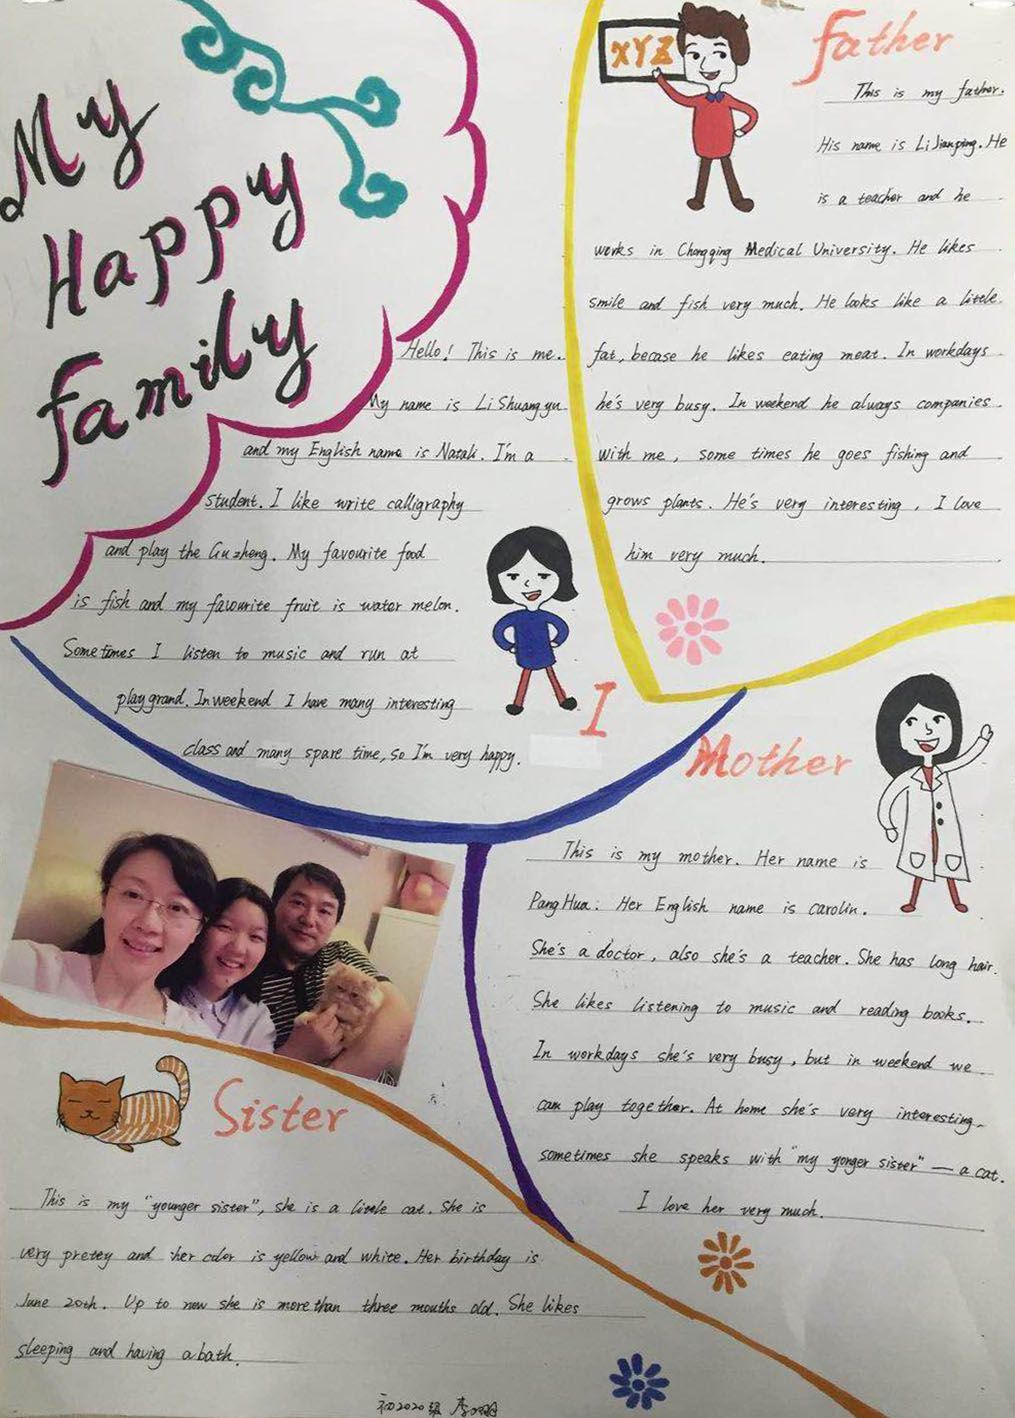 My
Happy
family
Hello! This is me.
My name is Li Shuang yu
and my English name is Natali. I'm a
student. I like write calligraphy
and play the Gu zheng. My favourite food
is fish and my favourite fruit is water melon.
Sometimes I listen to music and run at
playgrand. In weekend I have many interesting
class and many spare time, so I'm very happy.
I
XYZ
father
This is my father.
His name is Li Jianping. He
is a teacher and he
works in Chongqing Medical University. He likes
smile and fish very much. He looks like a little
fat, becase he likes eating meat. In workdays
he's very busy. In weekend he always companies
with me, some times he goes fishing and
grows plants. He's very interesting, I love
him very much.
Mother
This is my mother. Her name is
Pang Hua. Her English name is carolin.
She's a doctor, also she's a teacher. She has long hair.
She likes listening to music and reading books.
In workdays she's very busy, but in weekend we
can play together. At home she's very interesting,
sometimes she speaks with "my yonger sister" — a cat.
I love her very much.
Sister
This is my "younger sister", she is a little cat. She is
very pretey and her color is yellow and white. Her birthday is
June 20th. Up to now she is more than three mouths old. She likes
sleeping and having a bath.
初2020级 李